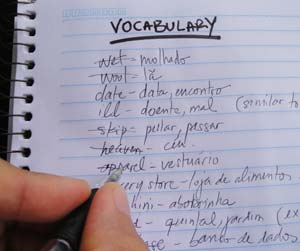 VOCABULARY
wet = molhado
wool = lã
date - data, encontro
ill - doente, mal (similar to
skip - pular, passar
heaven - céu
apparel - vestuário
ery store - loja de alimentos
hini - abobrinha
quintal, jardim (ex
ase - banco de dados